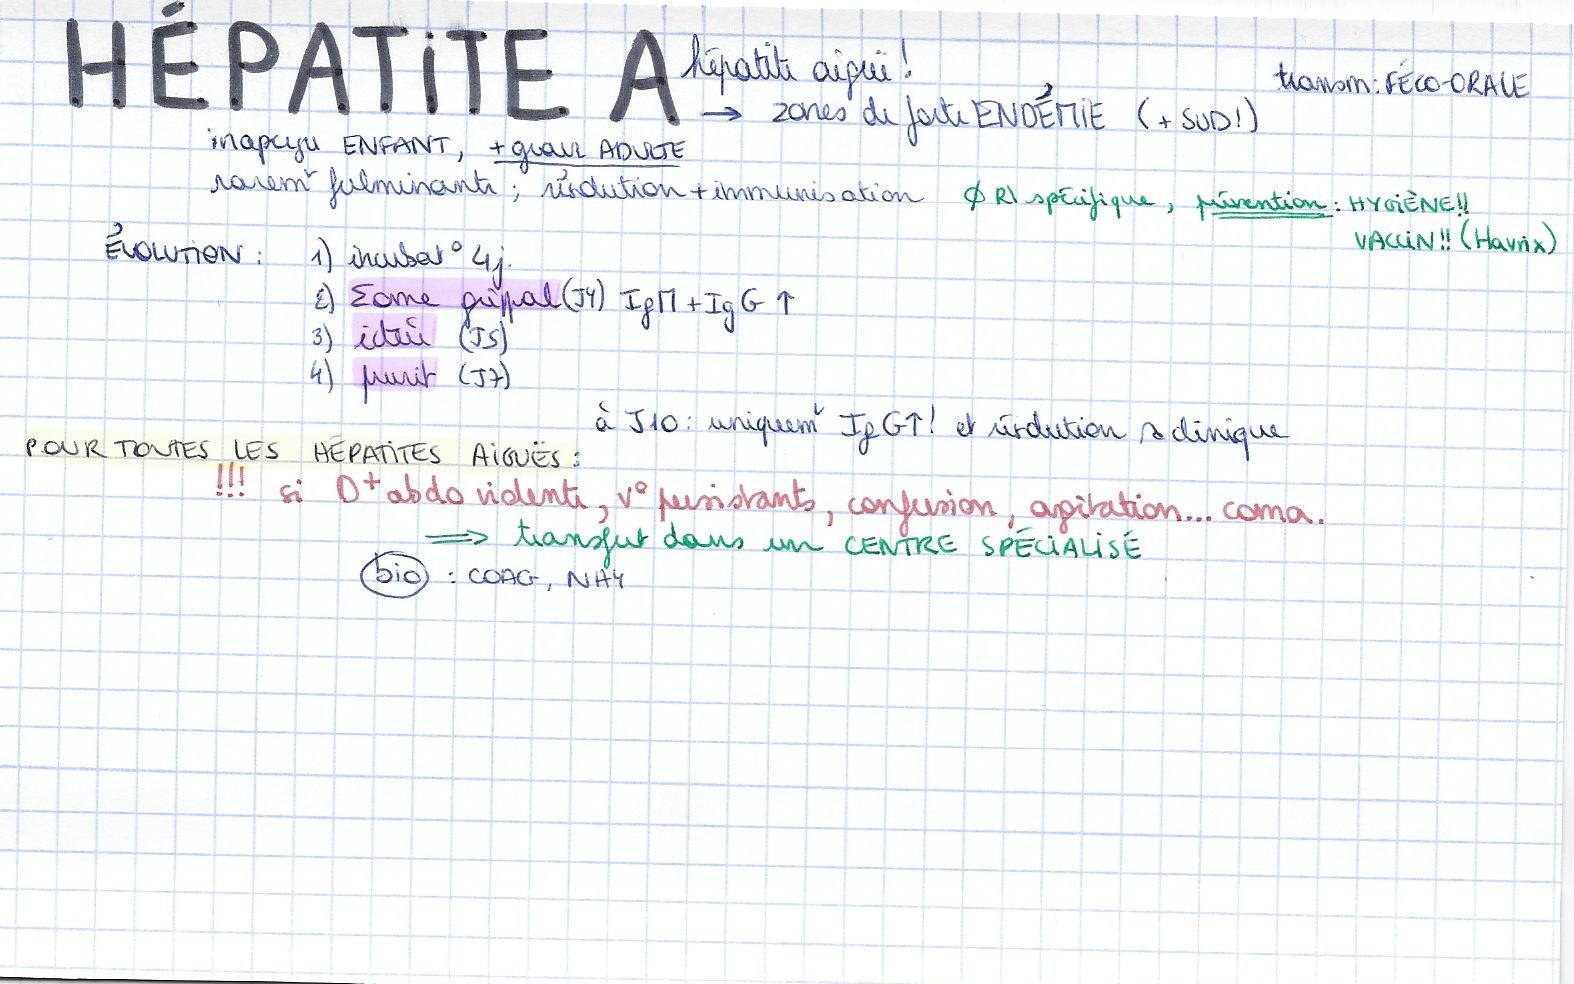 HÉPATITE A hépatite aiguë!
transm: FÉCO-ORALE
→ zones de forte ENDÉMIE (+ SUD!)
inaperçu ENFANT, + grave ADULTE
raremt fulminante ; résolution + immunisation Ø R/ spécifique, prévention : HYGIÈNE!!
VACCIN!! (Havrix)
ÉVOLUTION : 1) incubat° 4j.
2) Σome grippal (J4) IgM + IgG ↑
3) ictère (J5)
4) prurit (J7)
à J10 : uniquemt IgG↑! et résolution clinique
POUR TOUTES LES HÉPATITES AIGUËS :
!!! si D+ abdo violente, v° persistants, confusion, agitation... coma.
⇒ transfert dans un CENTRE SPÉCIALISÉ
bio : COAG, NH4